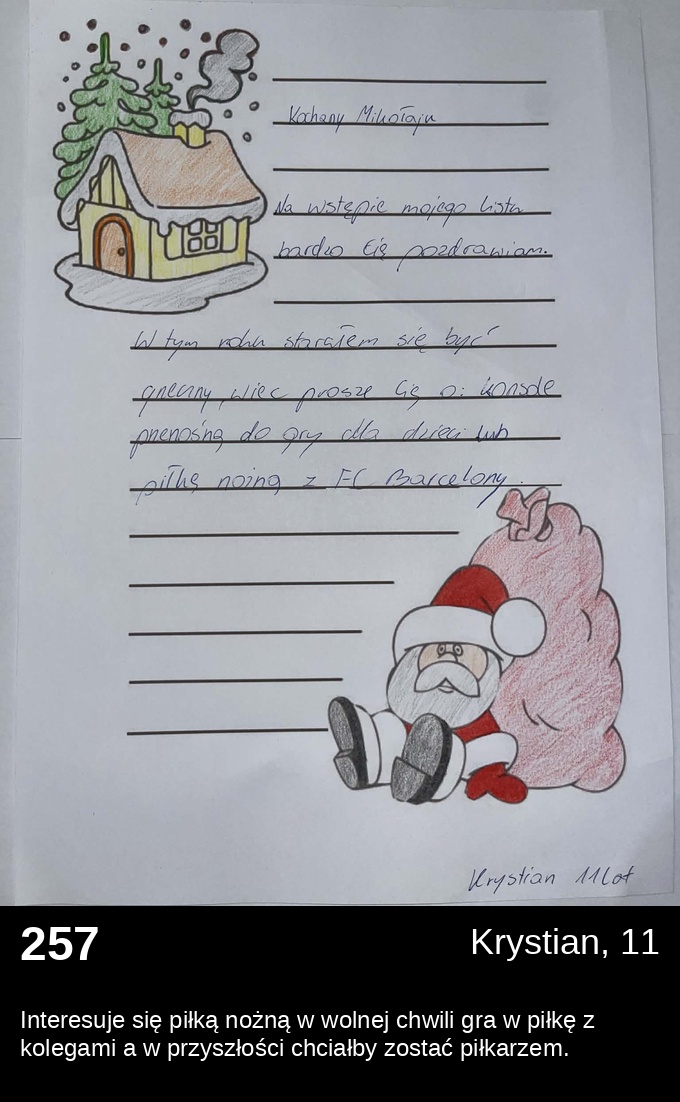 Kochany Mikołaju
Na wstępie mojego listu
bardzo Cię pozdrawiam.
W tym roku starałem się być
grzeczny, więc proszę Cię o: konsolę
przenośną do gry dla dzieci lub
piłkę nożną z FC Barcelony.
Krystian 11 lat
257
Krystian, 11
Interesuje się piłką nożną w wolnej chwili gra w piłkę z
kolegami a w przyszłości chciałby zostać piłkarzem.